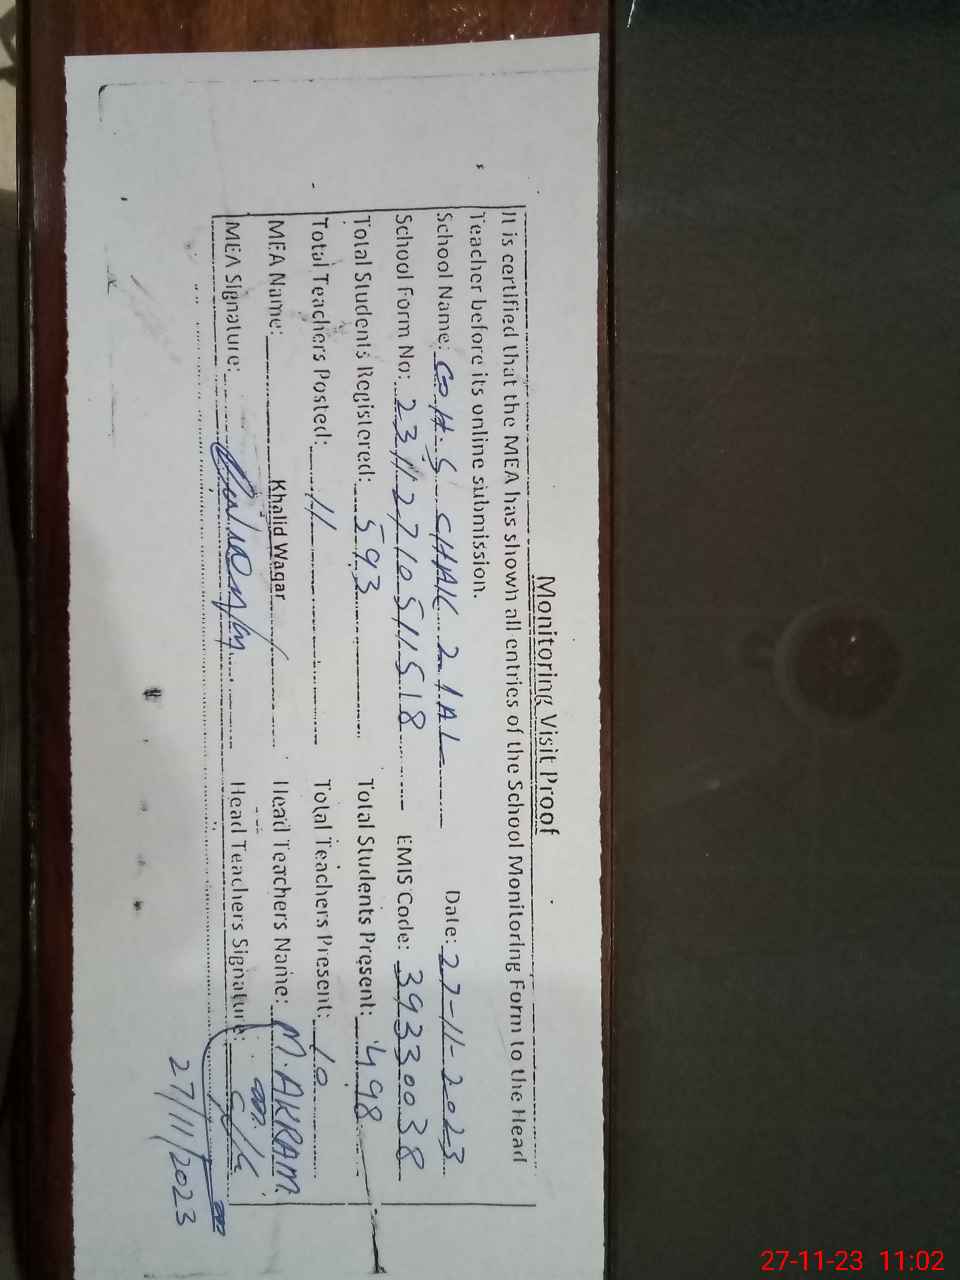 Monitoring Visit Proof
It is certified that the MEA has shown all entries of the School Monitoring Form to the Head
Teacher before its online submission.
School Name: G.H.S CHAK 21AL Date: 27-11-2023
School Form No: 23112710511518 EMIS Code: 39330038
Total Students Registered: 593 Total Students Present: 498
Total Teachers Posted: 11 Total Teachers Present: 10
MEA Name: Khalid Waqar Head Teachers Name: M.AKRAM
MEA Signature: Head Teachers Signature:
27/11/2023
27-11-23 11:02